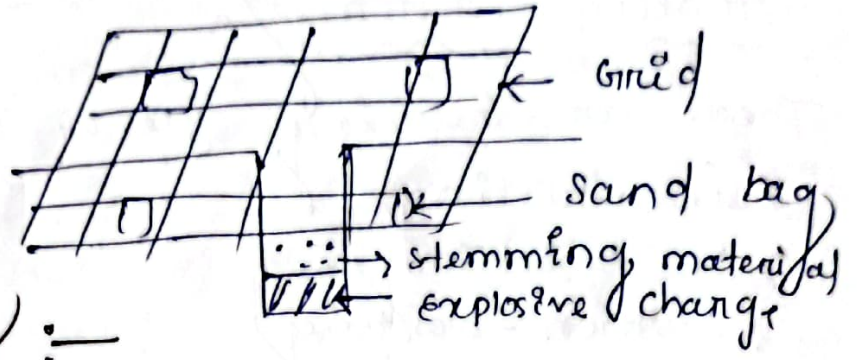 Grid
sand bag
stemming material
explosive charge
) :—